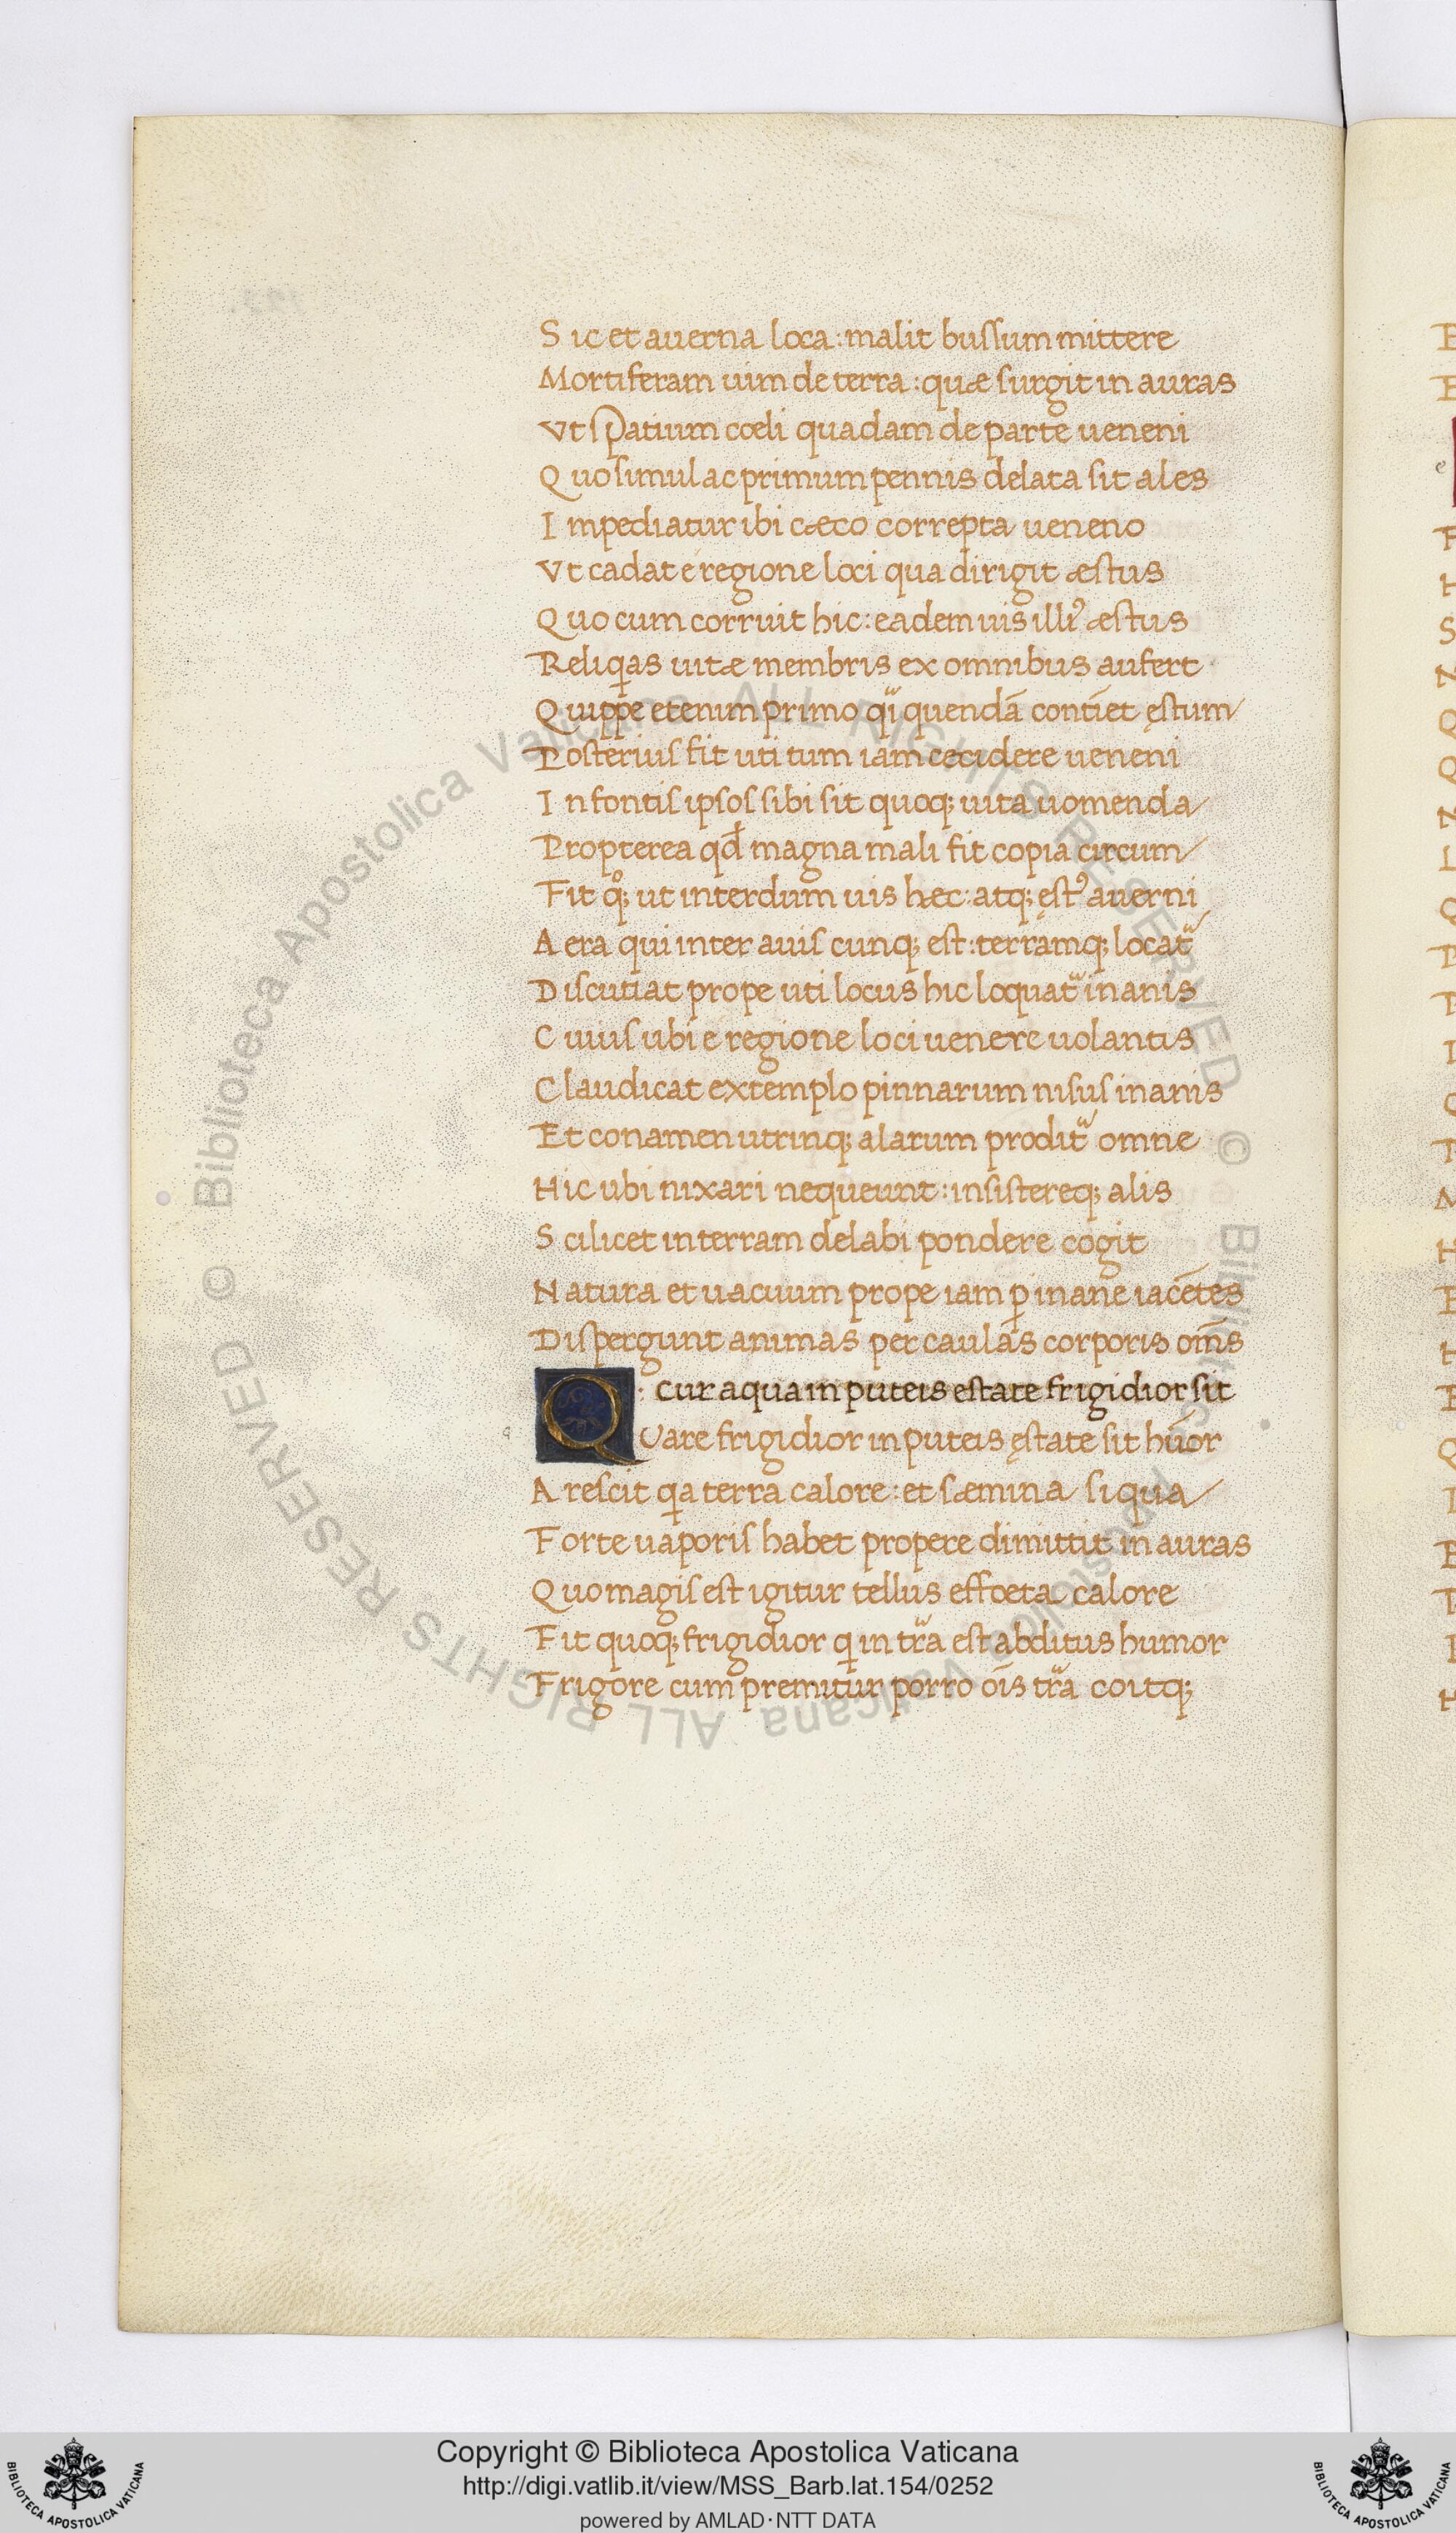 S ic et auerna loca : malit bussum mittere
Mortiferam uim de terra : quæ surgit in auras
Vt spatium cœli quadam de parte ueneni
Q uo simul ac primum pennis delata sit ales
I mpediatur ibi cæco correpta ueneno
Vt cadat e regione loci qua dirigit æstus
Q uo cum corruit hic : eadem uis illiꝰ æstus
Reliq̣as uitæ membris ex omnibus aufert
Q uippe etenim primo qͣi quendā contīet ęstum
Posterius fit uti tum iam cecidere ueneni
I n fontis ipsos sibi sit quoq; uita uomenda
Propterea qđ magna mali fit copia circum
Fit qͦ; ut interdum uis hæc : atq; ęstꝰ auerni
A era qui inter auis cunq; est : terramq; locatͬ
D iscutiat prope uti locus hic loquatͬ inanis
C uius ubi e regione loci uenere uolantis
C laudicat extemplo pinnarum nisus inanis
Et conamen utrinq; alarum proditͬ omne
Hic ubi nixari nequeunt : insistereq; alis
S cilicet in terram delabi pondere cogit
N atura et uacuum prope iam ꝑ inane iacētes
Dispergunt animas per caulas corporis om̄s
: cur aqua in puteis estate frigidior sit
q
QVare frigidior in puteis ęstate sit hūor
A rescit qa terra calore : et sæmina si qua
Forte uaporis habet propere dimittit in auras
Q uo magis est igitur tellus effœta calore
Fit quoq; frigidior q in trͣa est abditus humor
Frigore cum premitur porro oīs trͣa coitq;
Copyright © Biblioteca Apostolica Vaticana
http://digi.vatlib.it/view/MSS_Barb.lat.154/0252
powered by AMLAD·NTT DATA
BIBLIOTECA APOSTOLICA VATICANA
BIBLIOTECA APOSTOLICA VATICANA
© Biblioteca Apostolica Vaticana ALL RIGHTS RESERVED
© Biblioteca Apostolica Vaticana ALL RIGHTS RESERVED